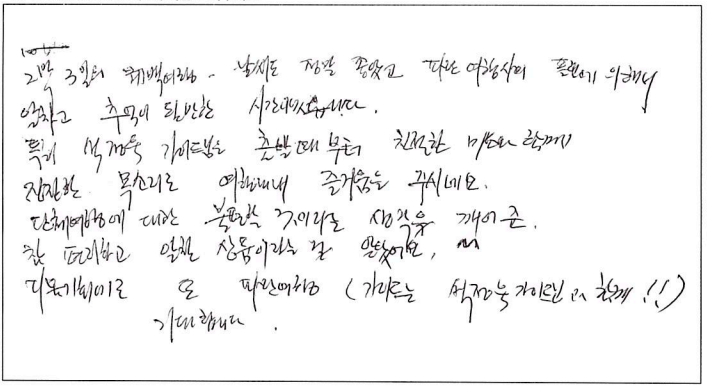 2박 3일의 태백여행 - 날씨도 정말 좋았고 파란여행사의 플랜에 의해서
알차고 추억이 듬반한 시간이었습니다.
특히 석정욱 가이드님은 출발때부터 친절한 미소와 함께
잔잔한 목소리로 여행내내 즐거움을 주시네요.
단체여행에 대한 불편할 것이라는 생각을 깨어준.
참 편리하고 알찬 상품이라는 걸 알았어요.
다음기회에도 또 파란여행 (가이드는 석정욱가이드님과 함께!!)
기대합니다.